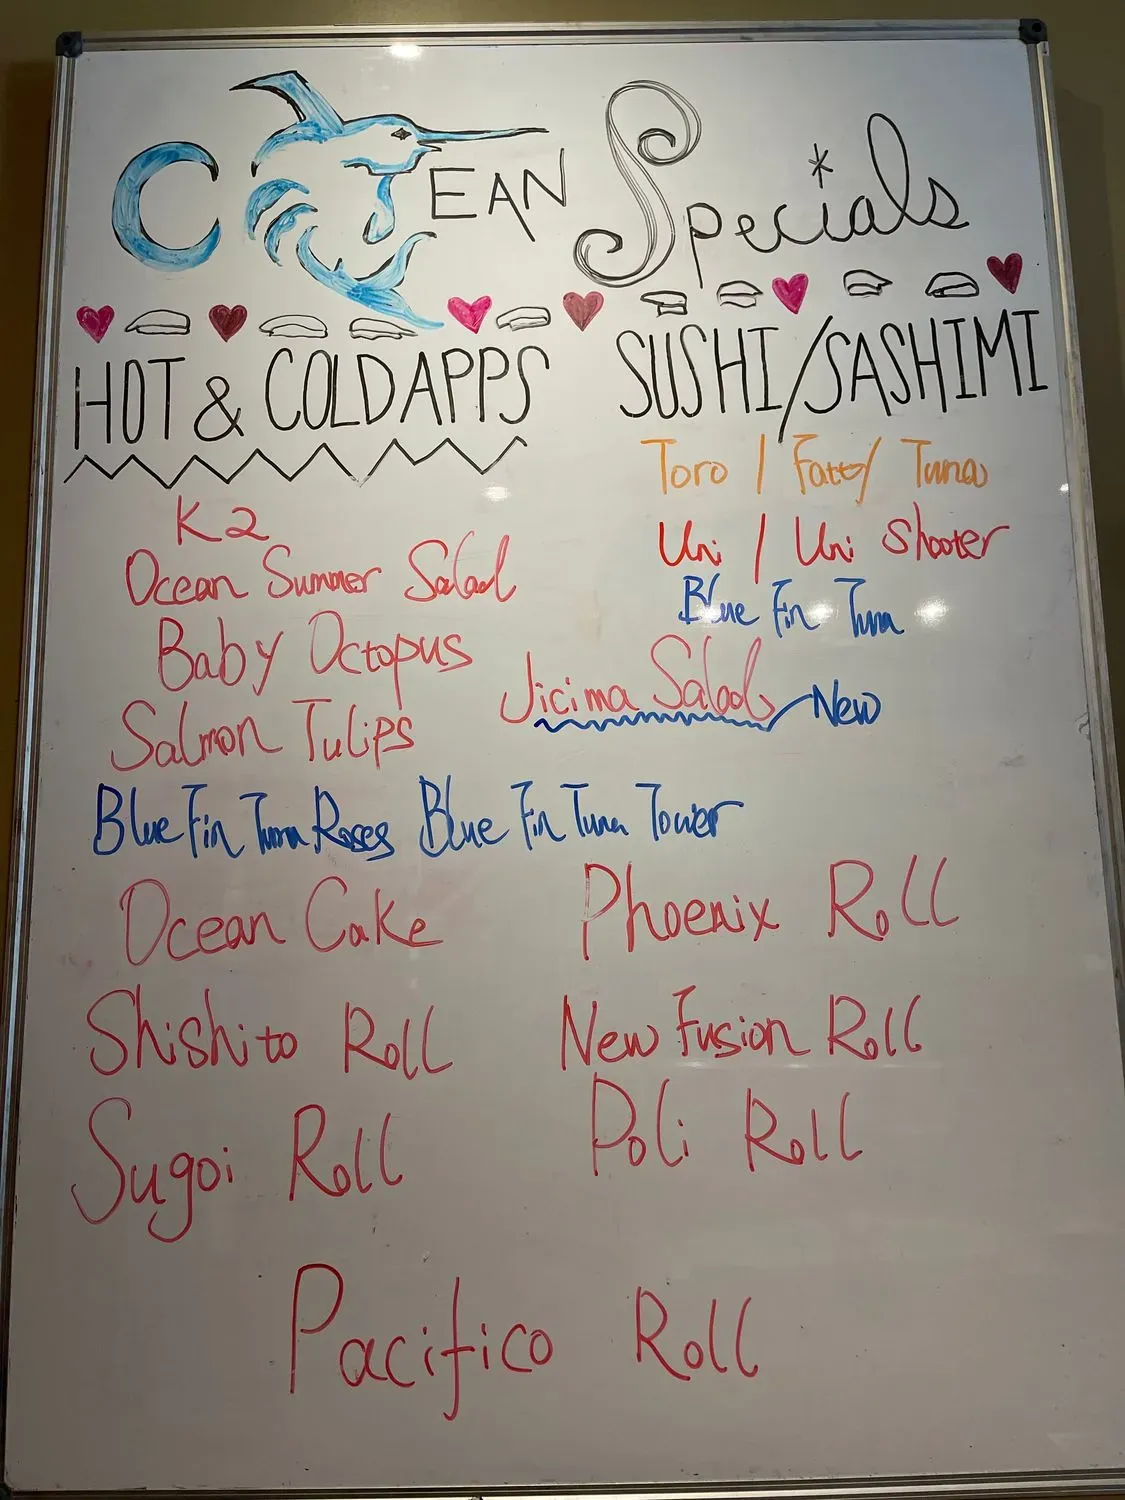 OCEAN Specials
HOT & COLD APPS
SUSHI/SASHIMI
Toro / Fatty Tuna
Uni / Uni Shooter
Blue Fin Tuna
K2
Ocean Summer Salad
Baby Octopus
Salmon Tulips
Jicima Salad New
Blue Fin Tuna Roses Blue Fin Tuna Tower
Ocean Cake Phoenix Roll
Shishito Roll New Fusion Roll
Sugoi Roll Poli Roll
Pacifico Roll